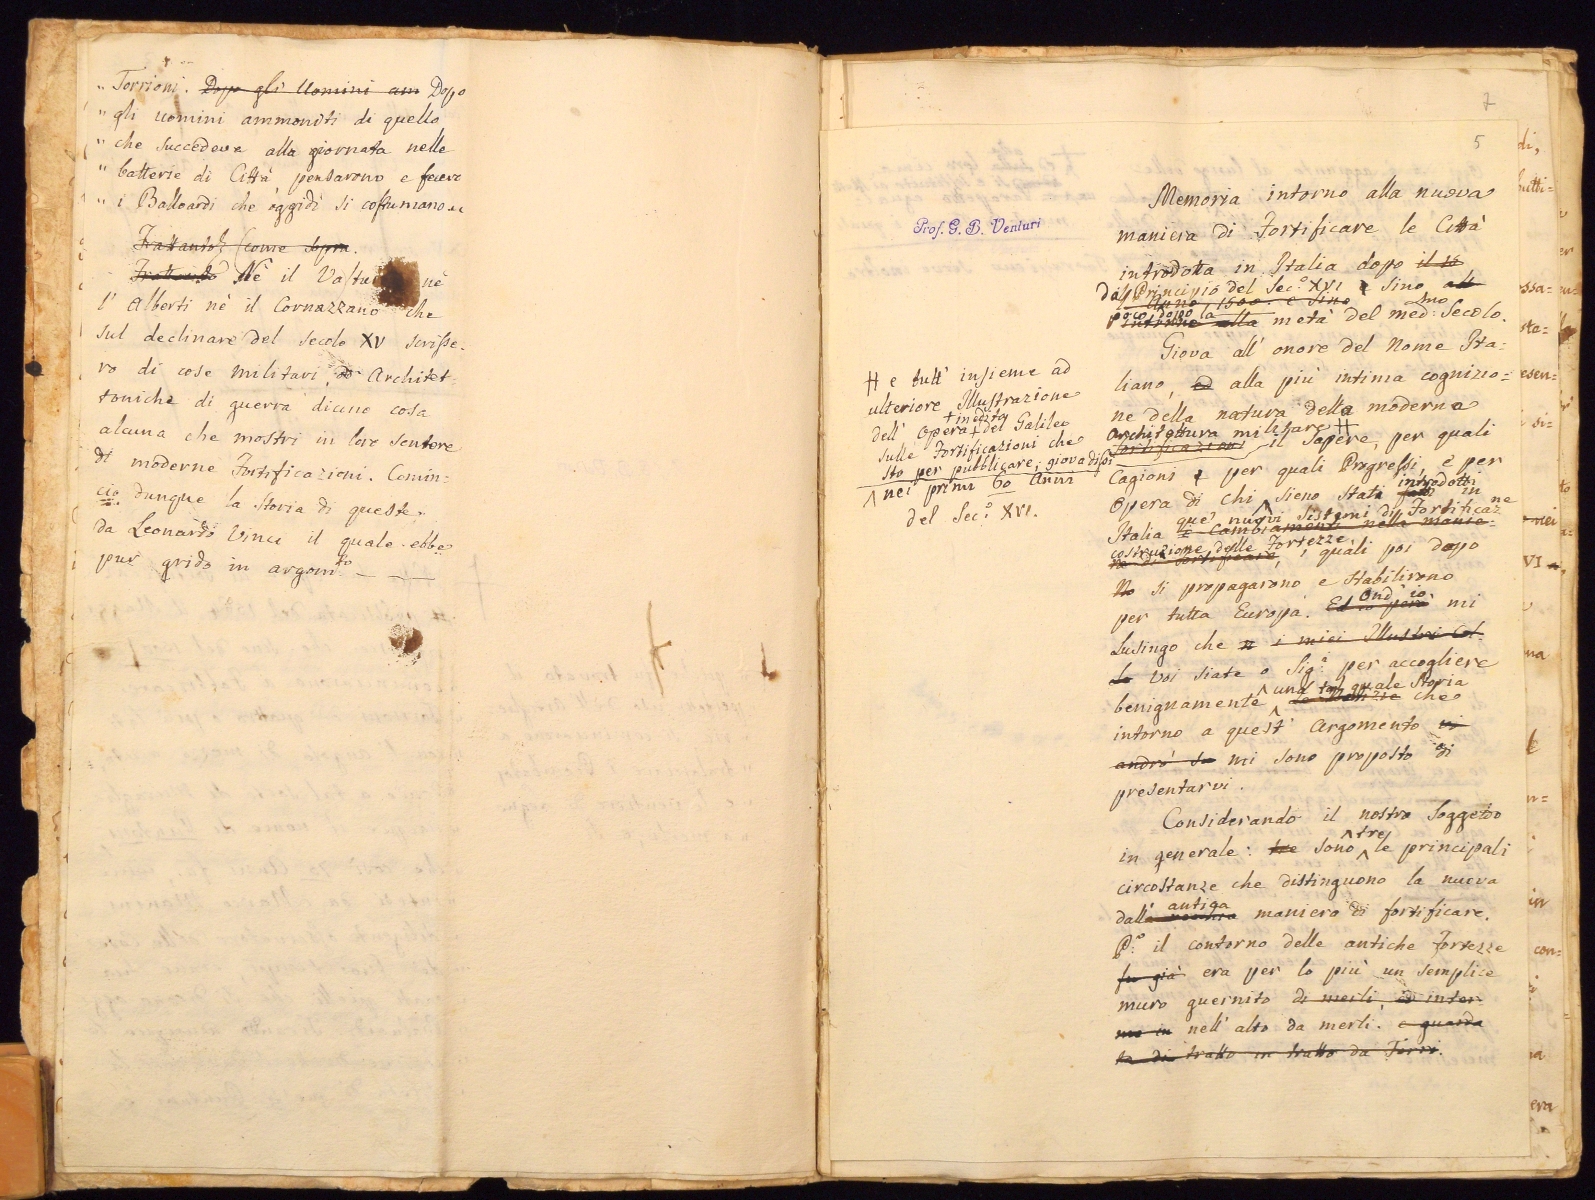 „ Torrioni. Dopo gli Uomini am Dopo
„ gli uomini ammoniti di quello
„ che succedeva alla giornata nelle
„ batterie di Città pensarono e fecero
„ i Balloardi che oggidì si costumano „
Trattanto (come sopra.
Trattando Nè il Valtu nè
l' Alberti nè il Cornazzano che
sul declinare del secolo XV scrisse-
ro di cose militari, Architet-
toniche di guerra dicono cosa
alcuna che mostri in loro sentore
di moderne Fortificazioni. Comin-
cio dunque la Storia di queste
da Leonardo Vinci il quale ebbe
pur grido in argom.to
7
5
Prof. G. B. Venturi
Memoria intorno alla nuova
maniera di Fortificare le Città
introdotta in Italia dopo il 15
dal Principio del Sec.o XVI e Sino all
Anno 1500. e Sino
poco dopo la
intorno alla metà del med:smo Secolo.
Giova all' onore del Nome Ita-
liano, ed alla più intima cognizio=
ne della natura della moderna
Architettura militare #
fortificazione il Sapere, per quali
Cagioni e per quali Progressi, e per
Opera di chi sieno Stati fatti introdotti in
Italia que' nuovi Sistemi di Fortificaz.ne
i Cambiamenti nella manie-
costruzione delle Fortezze
ra di Fortificare, i quali poi dopo
si propagarono e Stabilirono
per tutta Europa. Ed io però Ond' io mi
Lusingo che i miei Illustri Col-
le Voi siate o Sig.i per accogliere
benignamente una tal quale Storia
le Notizie che
intorno a quest' Argomento vi
andrò su mi sono proposto di
presentarvi.
Considerando il nostro Soggetto
in generale: tre sono tre le principali
circostanze che distinguono la nuova
dall' antiga
vecchia maniera di fortificare.
P.o il contorno delle antiche Fortezze
fu già era per lo più un semplice
muro guernito di merli, ed inter-
no in nell' alto da merli. e guarda
ta di tratto in tratto da Torri.
# e tutt' insieme ad
ulteriore Illustrazione
+ inedita
dell' Opera + del Galileo
sulle Fortificazioni che
sto per pubblicare, giova dissi
nei primi 60 Anni
del Sec.o XVI.